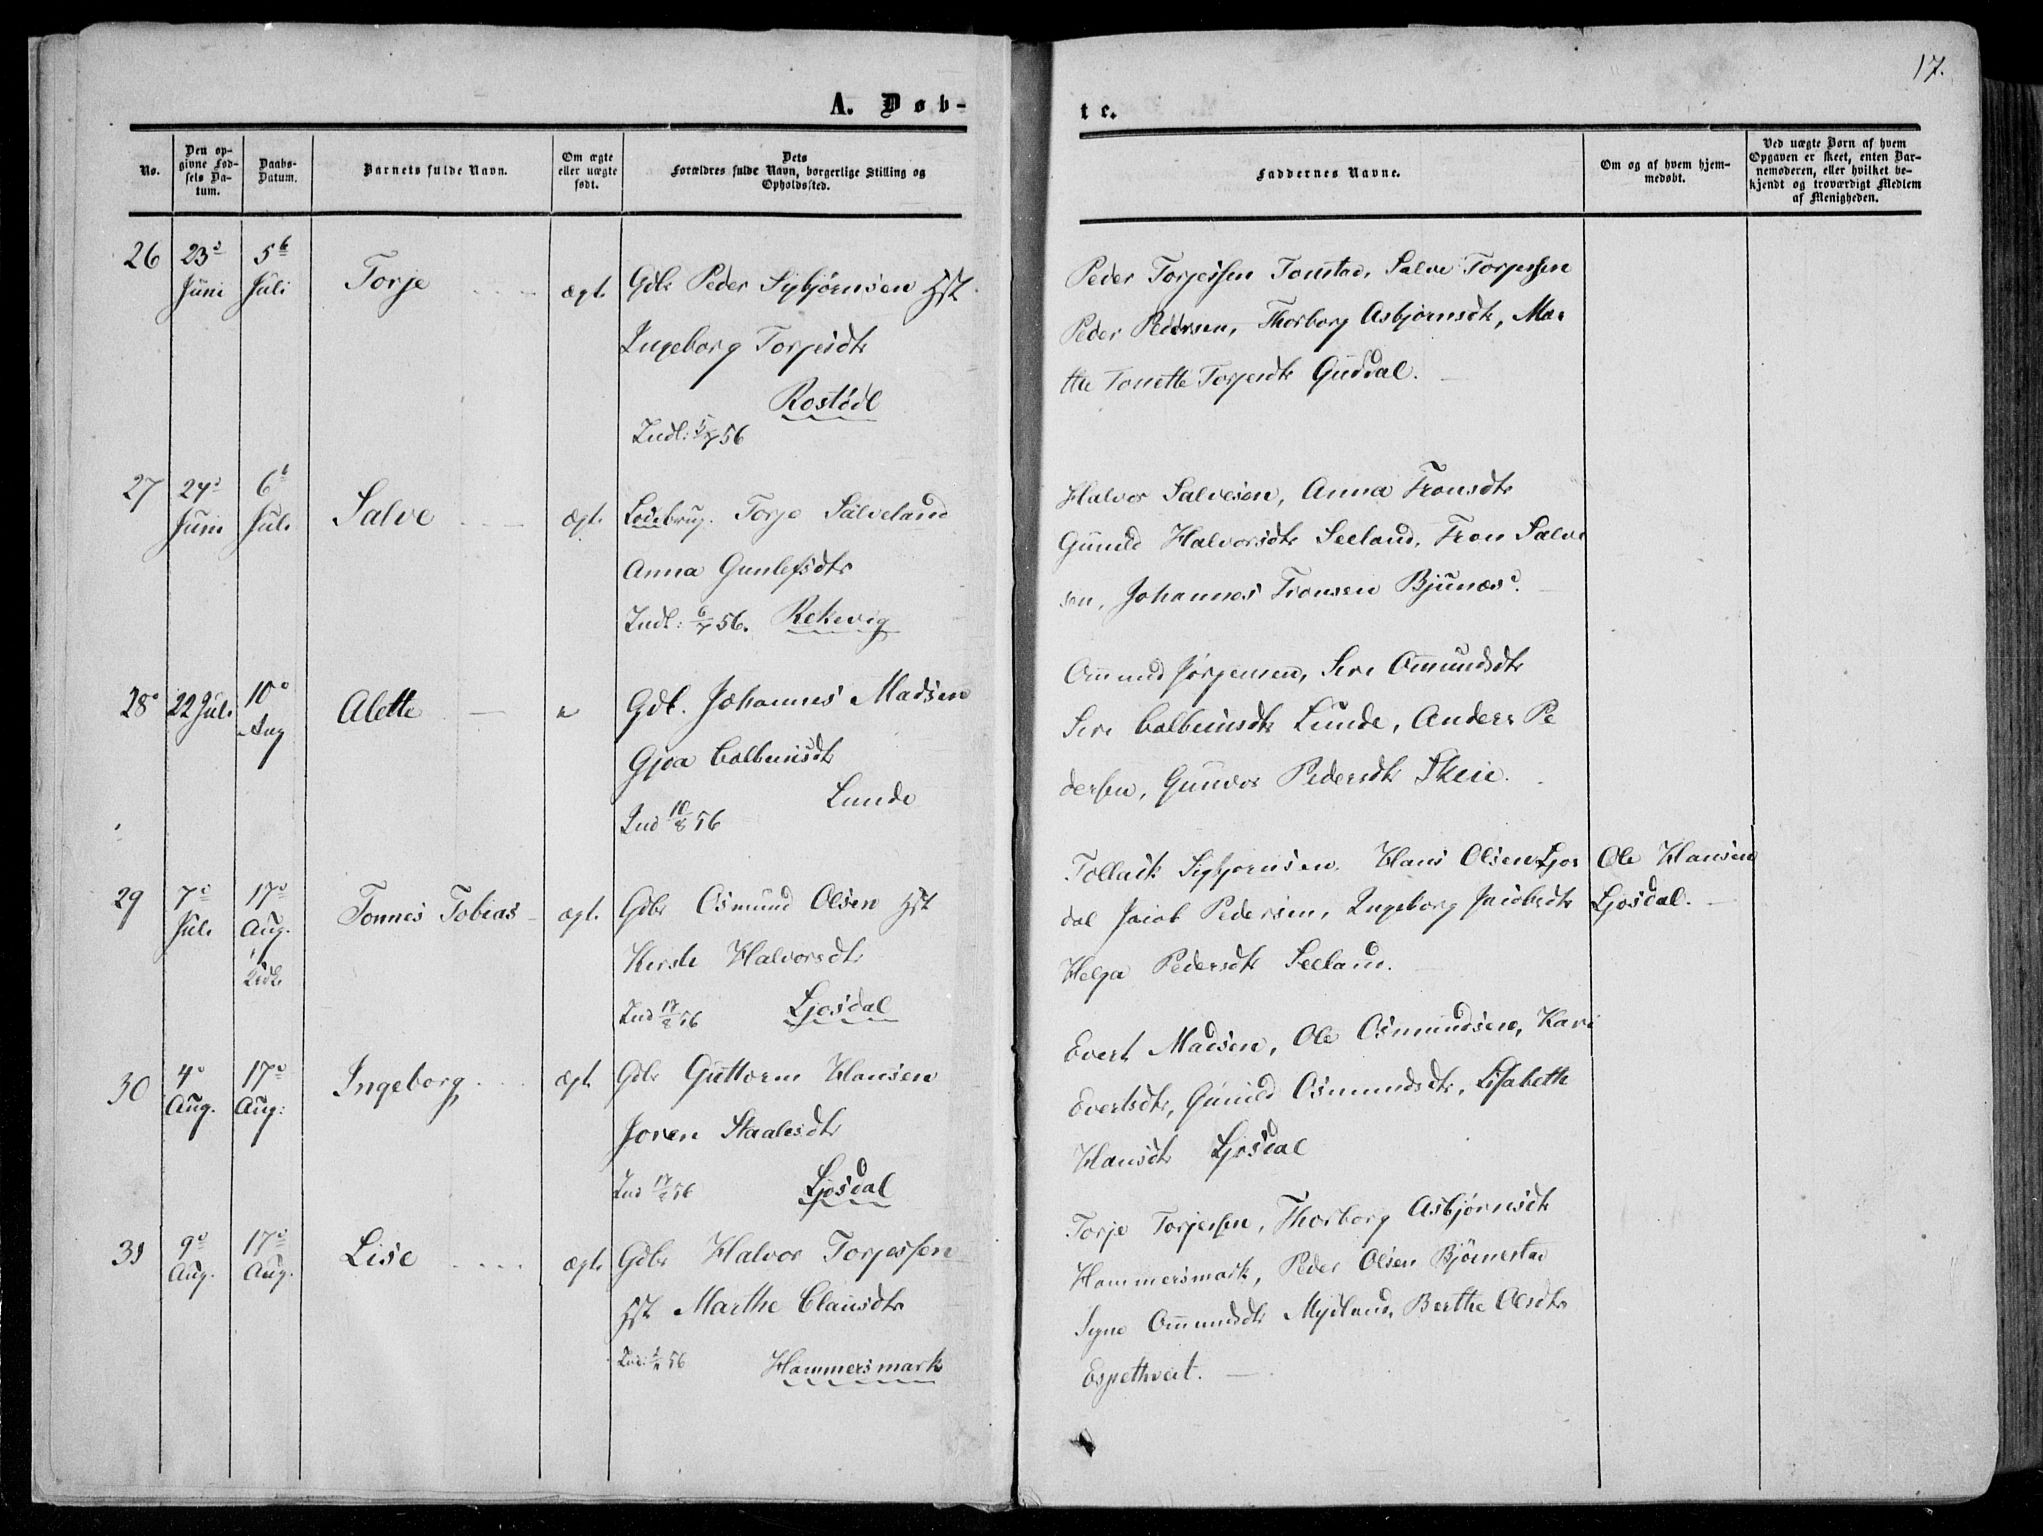 17.
A. Døb-
te.
No.
Den op-
givne Fød-
sels Da-
tum.
Daabs-
Datum.
Barnets fulde Navn.
Om ægte
eller uægte
født.
Dets
Forældres fulde Navn, borgerlige Stilling og
Opholdssted.
Faddernes Navne.
Om og af hvem hjem-
medøbt.
Ved uægte Børn af hvem
Opgaven er skeet, enten Bar-
nemoderen, eller hvilket be-
kjendt og troværdigt Medlem
af Menigheden.
26 23 Juni 5 Juli Torje ægt. Gdbr Peder Sigbjørnsen Hst
Ingeborg Torjesdtr
Rostødl
Indl: 5/7 56
Peder Torjessen Tonstad, Salve Torjessen
Peder Pedersen, Thorborg Asbjørnsdtr, Mar
the Tonette Torjesdtr Guddal.
27 24 Juni 6 Juli Salve ægt. Torje Salveland
Anna Gunlefsdtr
Indl: 6/7 56. Rekevig
Halvor Salvesen, Anna Tronsdtr
Gunild Halvorsdtr Seeland, Tron Salve
sen, Johannes Tronsen Bjunæs.
28 22 Juli 10 Aug Alette Gdb. Johannes Madsen
Gjoa Colbeinsdtr
Lunde
Ind 10/8 56
Omund Jørgensen, Siri Omundsdtr
Siri Colbeinsdtr Lunde, Anders Pe
dersen, Gunvor Pedersdtr Skeie.
29 7 Juli 17 Aug. Tonnes Tobias ægt. Gdbr Osmund Olsen Hst
Kirste Halvorsdtr
Ind 17/8 56 Ljosdal
Tollack Sigbjørnsen. Hans Olsen Ljos
dal Jacob Pedersen, Ingeborg Jacobsdtr
Helga Pedersdtr Seeland.
Ole Hansen
Ljosdal.
30 4 Aug. 17 Aug: Ingeborg ægt Gdbr Guttorm Hansen
Joren Staalesdtr
Ind 17/8 56 Ljosdal
Evert Madsen, Ole Osmundsen, Kari
Evertsdtr, Gunild Osmundsdtr, Lisabeth
Hansdtr Ljosdal
31 9 Aug. 17 Aug. Lise ægt. Gdbr Halvor Torjessen
Hst Marthe Clausdtr
Hammersmark
Torje Torjessen, Thorborg Asbjørnsdtr
Hammersmark, Peder Olsen Bjørnestad
Signe Omundsdtr Mydland, Berthe Olsdtr
Espethveit.